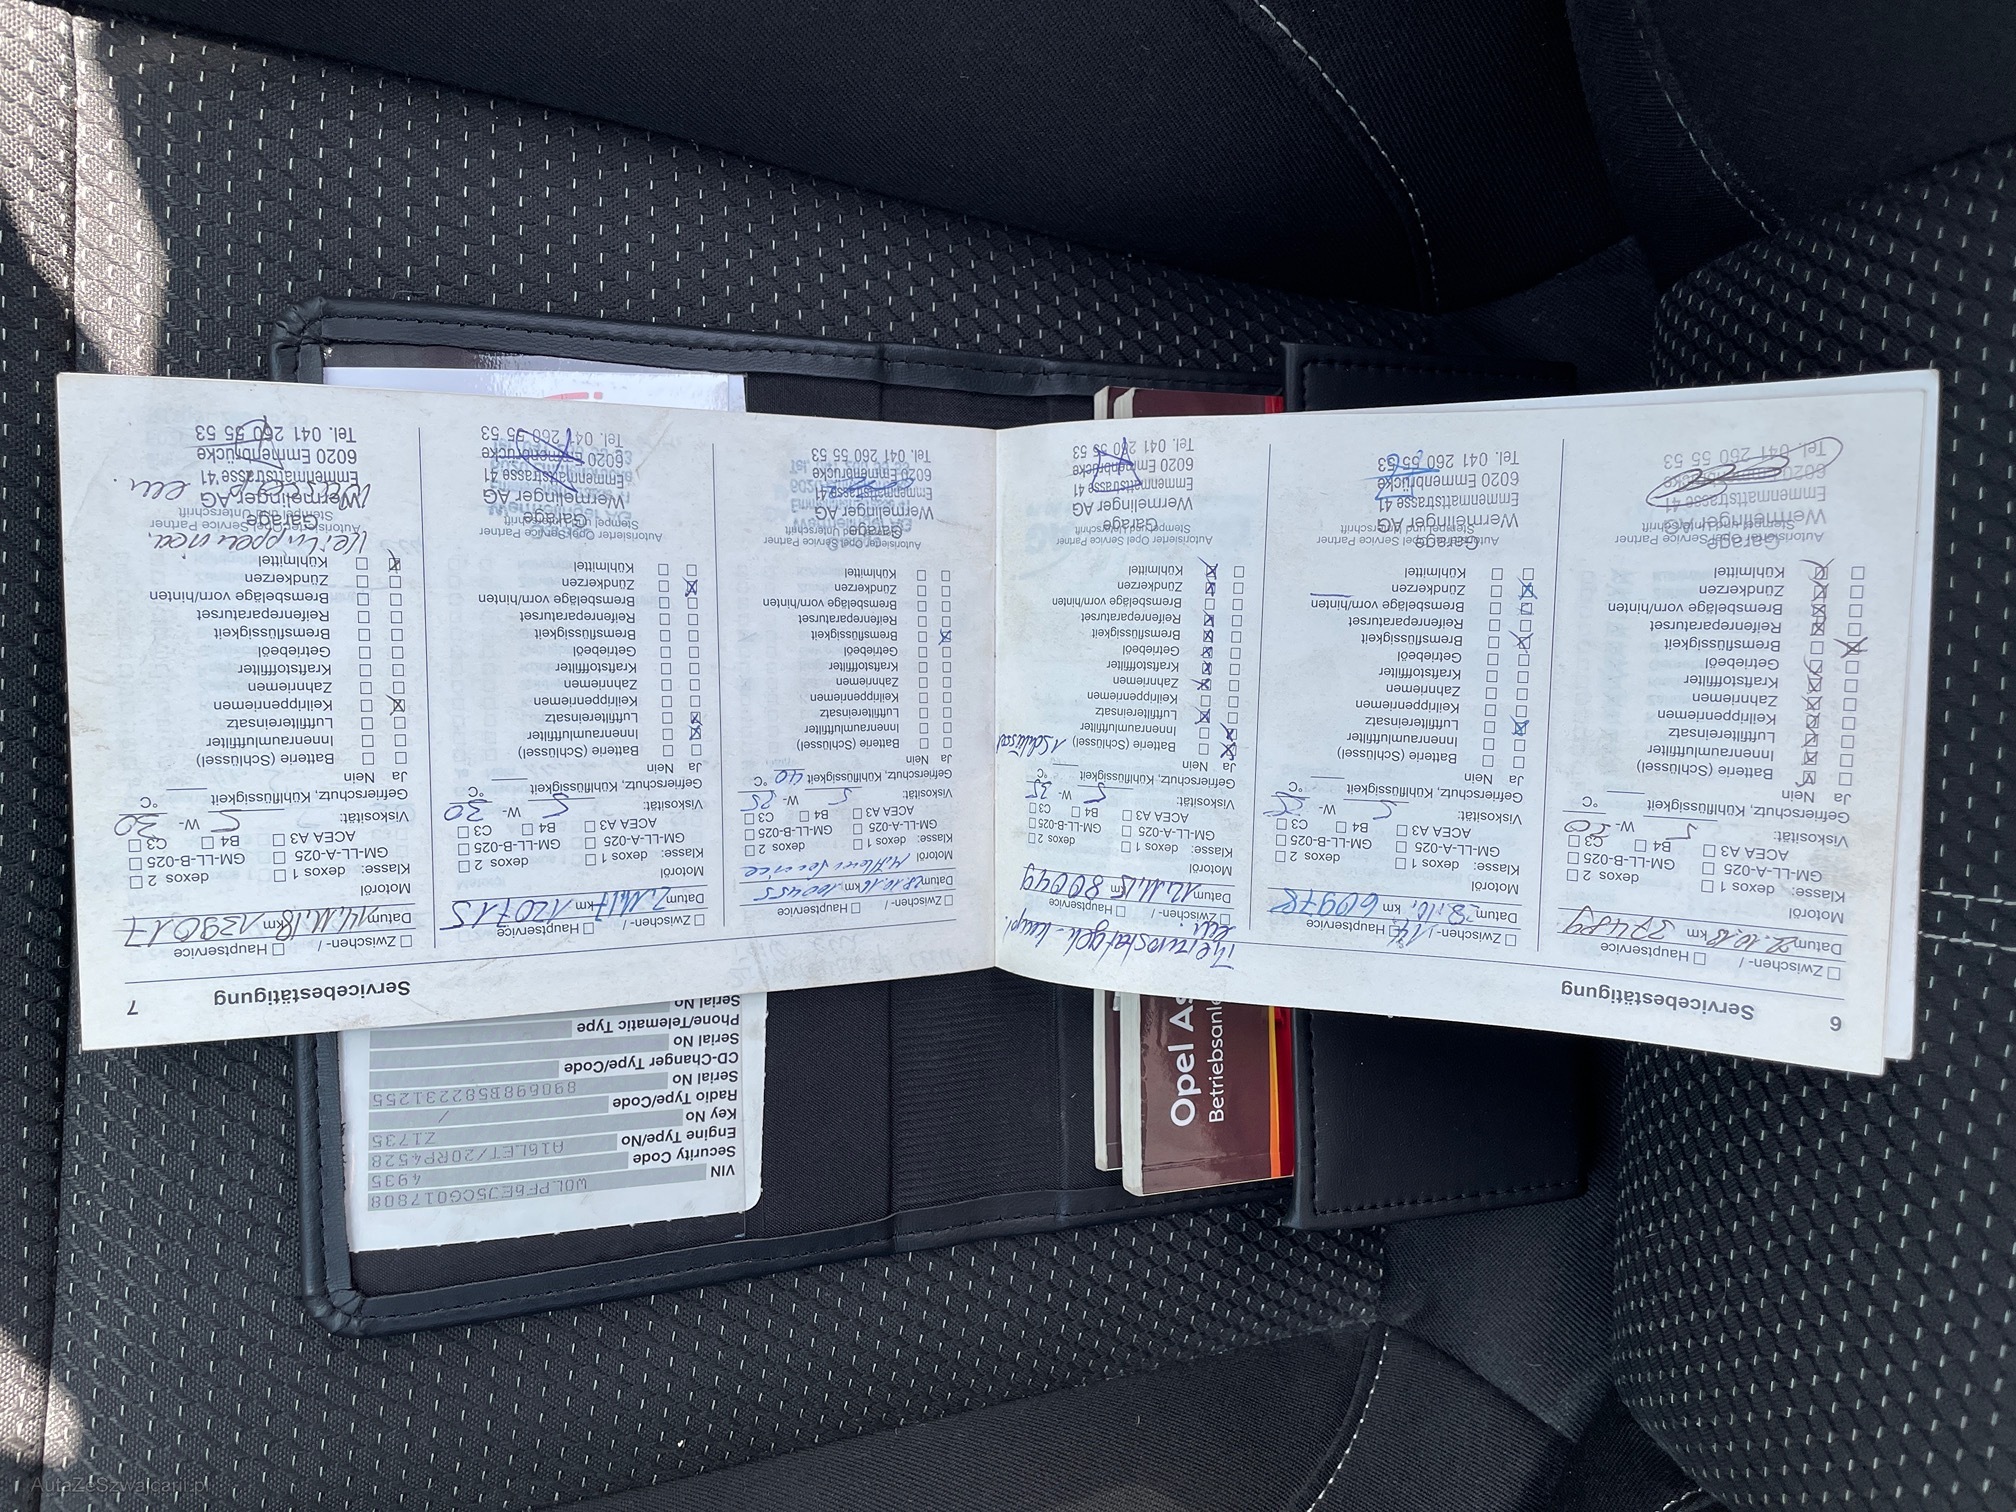 6 Servicebestätigung
Zwischen- / Hauptservice
Datum 22.10.13 km 37489
Motoröl
Klasse: dexos 1 dexos 2
GM-LL-A-025 GM-LL-B-025
ACEA A3 B4 C3
Viskosität: 5 W-
Gefrierschutz, Kühlflüssigkeit °C
Ja Nein
Batterie (Schlüssel)
Innenraumluftfilter
Luftfiltereinsatz
Keilrippenriemen
Zahnriemen
Kraftstofffilter
Getriebeöl
Bremsflüssigkeit
Reifenreparaturset
Bremsbeläge vorn/hinten
Zündkerzen
Kühlmittel
Autorisierter Opel Service Partner
Stempel und Unterschrift
Garage
Wermelinger AG
Emmenmattstrasse 41
6020 Emmenbrücke
Tel. 041 260 55 53
Zwischen- / Hauptservice
14
Datum 28.10. km 60978
Motoröl
Klasse: dexos 1 dexos 2
GM-LL-A-025 GM-LL-B-025
ACEA A3 B4 C3
Viskosität: 5 W-
Gefrierschutz, Kühlflüssigkeit °C
Ja Nein
Batterie (Schlüssel)
Innenraumluftfilter
Luftfiltereinsatz
Keilrippenriemen
Zahnriemen
Kraftstofffilter
Getriebeöl
Bremsflüssigkeit
Reifenreparaturset
Bremsbeläge vorn/hinten
Zündkerzen
Kühlmittel
Autorisierter Opel Service Partner
Stempel und Unterschrift
Garage
Wermelinger AG
Emmenmattstrasse 41
6020 Emmenbrücke
Tel. 041 260 55 53
Zwischen- / Hauptservice
Datum 12.11.15 km 80049
Motoröl
Klasse: dexos 1 dexos 2
GM-LL-A-025 GM-LL-B-025
ACEA A3 B4 C3
Viskosität: 5 W-
Gefrierschutz, Kühlflüssigkeit 35 °C
Ja Nein
Batterie (Schlüssel) 1 Schlüssel
Innenraumluftfilter
Luftfiltereinsatz
Keilrippenriemen
Zahnriemen
Kraftstofffilter
Getriebeöl
Bremsflüssigkeit
Reifenreparaturset
Bremsbeläge vorn/hinten
Zündkerzen
Kühlmittel
Autorisierter Opel Service Partner
Stempel und Unterschrift
Garage
Wermelinger AG
Emmenmattstrasse 41
6020 Emmenbrücke
Tel. 041 260 55 53
Servicebestätigung 7
Zwischen- / Hauptservice
Datum 28.10.16 km 100455
Motoröl
Klasse: dexos 1 dexos 2
GM-LL-A-025 GM-LL-B-025
ACEA A3 B4 C3
Viskosität: 5 W-
Gefrierschutz, Kühlflüssigkeit 40 °C
Ja Nein
Batterie (Schlüssel)
Innenraumluftfilter
Luftfiltereinsatz
Keilrippenriemen
Zahnriemen
Kraftstofffilter
Getriebeöl
Bremsflüssigkeit
Reifenreparaturset
Bremsbeläge vorn/hinten
Zündkerzen
Kühlmittel
Autorisierter Opel Service Partner
Stempel und Unterschrift
Garage
Wermelinger AG
Emmenmattstrasse 41
6020 Emmenbrücke
Tel. 041 260 55 53
Zwischen- / Hauptservice
Datum 2.11.17 km 120715
Motoröl
Klasse: dexos 1 dexos 2
GM-LL-A-025 GM-LL-B-025
ACEA A3 B4 C3
Viskosität: 5 W-30
Gefrierschutz, Kühlflüssigkeit °C
Ja Nein
Batterie (Schlüssel)
Innenraumluftfilter
Luftfiltereinsatz
Keilrippenriemen
Zahnriemen
Kraftstofffilter
Getriebeöl
Bremsflüssigkeit
Reifenreparaturset
Bremsbeläge vorn/hinten
Zündkerzen
Kühlmittel
Autorisierter Opel Service Partner
Stempel und Unterschrift
Garage
Wermelinger AG
Emmenmattstrasse 41
6020 Emmenbrücke
Tel. 041 260 55 53
Zwischen- / Hauptservice
Datum 14.11.18 km 139017
Motoröl
Klasse: dexos 1 dexos 2
GM-LL-A-025 GM-LL-B-025
ACEA A3 B4 C3
Viskosität: 5 W-30
Gefrierschutz, Kühlflüssigkeit °C
Ja Nein
Batterie (Schlüssel)
Innenraumluftfilter
Luftfiltereinsatz
Keilrippenriemen
Zahnriemen
Kraftstofffilter
Getriebeöl
Bremsflüssigkeit
Reifenreparaturset
Bremsbeläge vorn/hinten
Zündkerzen
Kühlmittel
Stempel und Unterschrift
Autorisierter Opel Service Partner
Garage
Wermelinger AG
Emmenmattstrasse 41
6020 Emmenbrücke
Tel. 041 260 55 53
VIN W0LPF6EJ5CG017808
Security Code 4935
Engine Type/No A16LET/20RP4528
Key No Z1735
Radio Type/Code /
Serial No 890698B582231255
CD-Changer Type/Code
Serial No
Phone/Telematic Type
Serial No
Opel As
Betriebsanl
AutaZeSzwajcarii.pl